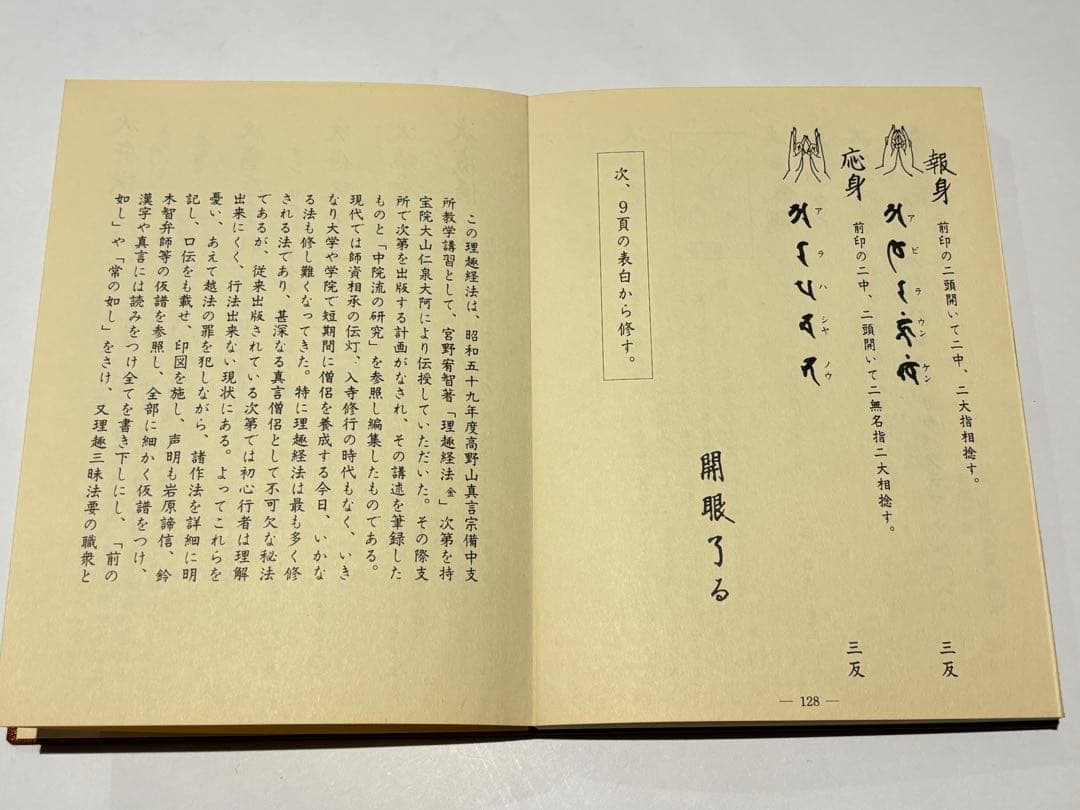 報身　前印の二頭開いて二中、二大指相捻す。　三反
アビラウンケン
応身　前印の二中、二頭開いて二無名指二大相捻す。　三反
アラハシヤノウ
次、9頁の表白から修す。
開眼了る
— 128 —
この理趣経法は、昭和五十九年度高野山真言宗備中支
所教学講習として、宮野宥智著「理趣経法金」次第を持
宝院大山仁泉大阿により伝授していただいた。その際支
所で次第を出版する計画がなされ、その講述を筆録した
ものと「中院流の研究」を参照し編集したものである。
現代では師資相承の伝灯、入寺修行の時代もなく、いき
なり大学や学院で短期間に僧侶を養成する今日、いかな
る法も修し難くなってきた。特に理趣経法は最も多く修
される法であり、甚深なる真言僧侶として不可欠な秘法
であるが、従来出版されている次第では初心行者は理解
出来にくく、行法出来ない現状にある。よってこれらを
憂い、あえて越法の罪を犯しながら、諸作法を詳細に明
記し、口伝をも載せ、印図を施し、声明も岩原諦信、鈴
木智弁師等の仮譜を参照し、全部に細かく仮譜をつけ、
漢字や真言には読みをつけ全てを書き下しにし、「前の
如し」や「常の如し」をさけ、又理趣三昧法要の職衆と